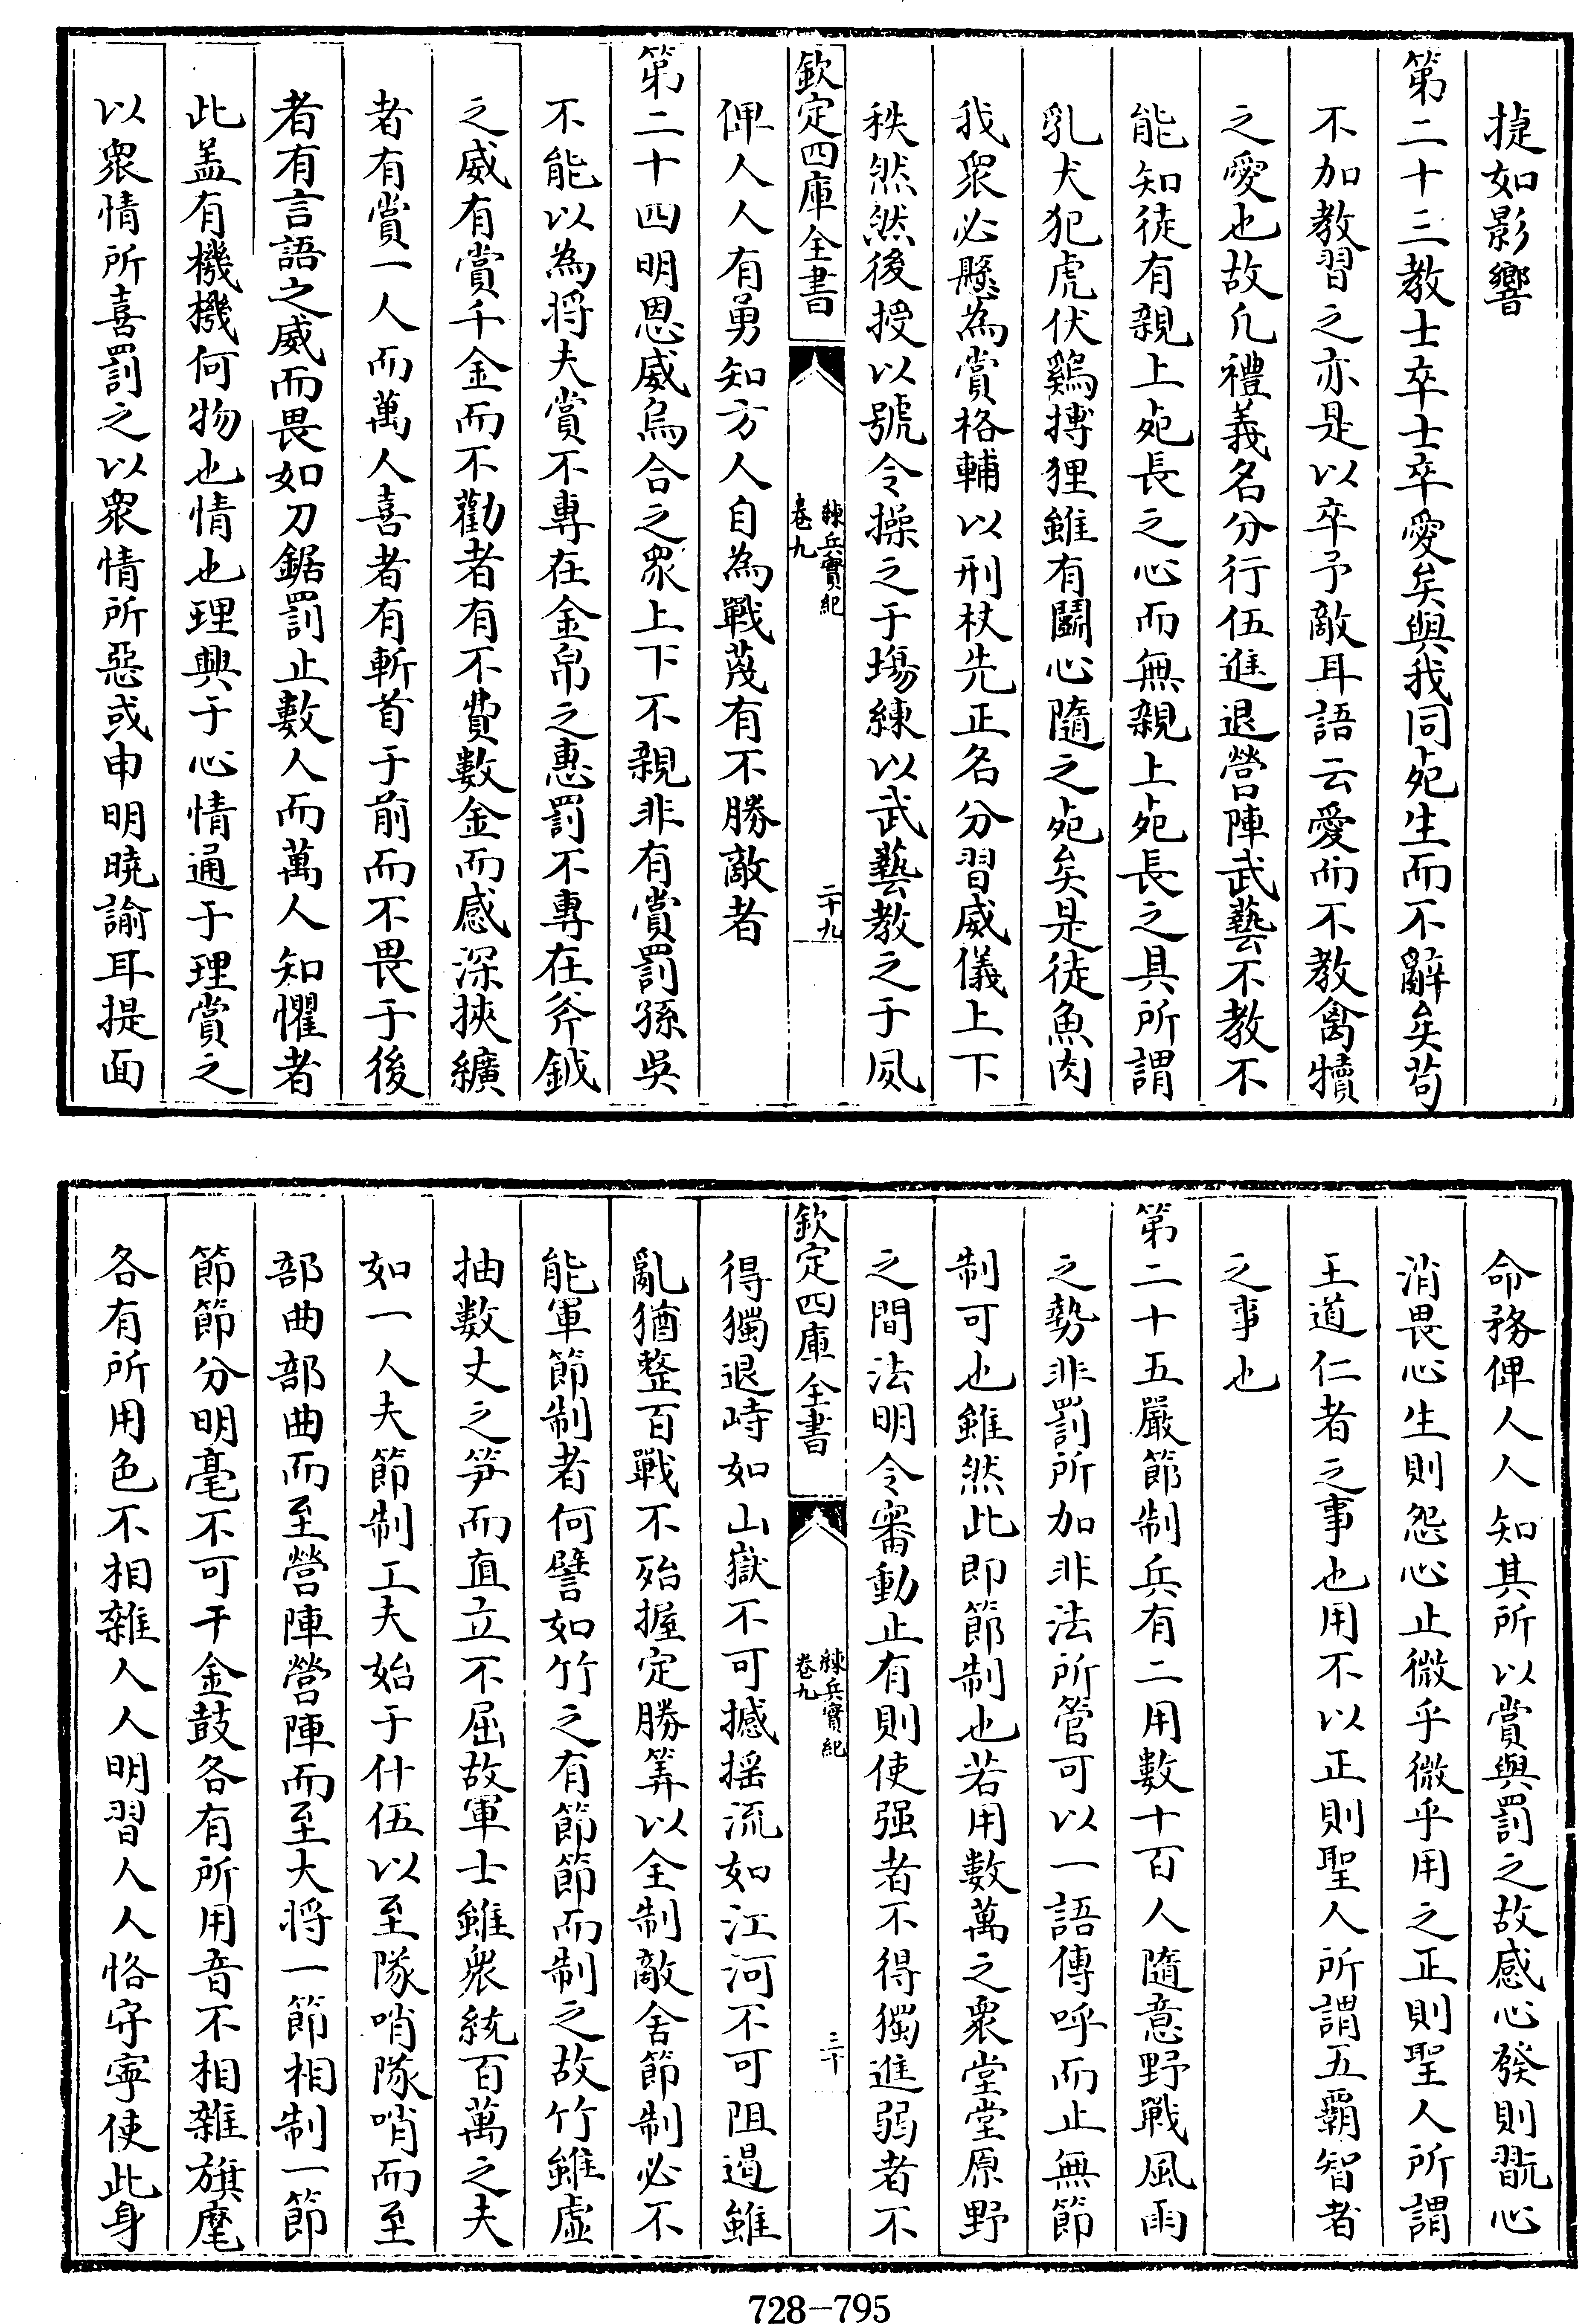 捷如影響
第二十三教士卒士卒愛矣與我同死生而不辭矣苟
不加教習之亦是以卒予敵耳語云愛而不教禽犢
之愛也故凡禮義名分行伍進退營陣武藝不教不
能知徒有親上死長之心而無親上死長之具所謂
乳犬犯虎伏鷄搏狸雖有鬭心隨之死矣是徒魚肉
我衆必懸為賞格輔以刑杖先正名分習威儀上下
秩然然後授以號令操之于塲練以武藝教之于夙
欽定四庫全書
練兵實紀
卷九
二十九
俾人人有勇知方人自為戰蔑有不勝敵者
第二十四明恩威烏合之衆上下不親非有賞罰孫吳
不能以為將夫賞不專在金帛之惠罰不專在斧鉞
之威有賞千金而不勸者有不費數金而感深挾纊
者有賞一人而萬人喜者有斬首于前而不畏于後
者有言語之威而畏如刀鋸罰止數人而萬人知懼者
此盖有機機何物也情也理興于心情通于理賞之
以衆情所喜罰之以衆情所惡或申明曉諭耳提面
命務俾人人知其所以賞與罰之故感心發則翫心
消畏心生則怨心止微乎微乎用之正則聖人所謂
王道仁者之事也用不以正則聖人所謂五霸智者
之事也
第二十五嚴節制兵有二用數十百人隨意野戰風雨
之勢非罰所加非法所管可以一語傳呼而止無節
制可也雖然此即節制也若用數萬之衆堂堂原野
之間法明令審動止有則使强者不得獨進弱者不
欽定四庫全書
練兵實紀
卷九
三十
得獨退峙如山嶽不可撼摇流如江河不可阻遏雖
亂猶整百戰不殆握定勝筭以全制敵舍節制必不
能軍節制者何譬如竹之有節節而制之故竹雖虛
抽數丈之笋而直立不屈故軍士雖衆統百萬之夫
如一人夫節制工夫始于什伍以至隊哨隊哨而至
部曲部曲而至營陣營陣而至大將一節相制一節
節節分明毫不可干金鼓各有所用音不相雜旗麾
各有所用色不相雜人人明習人人恪守寧使此身
728-795